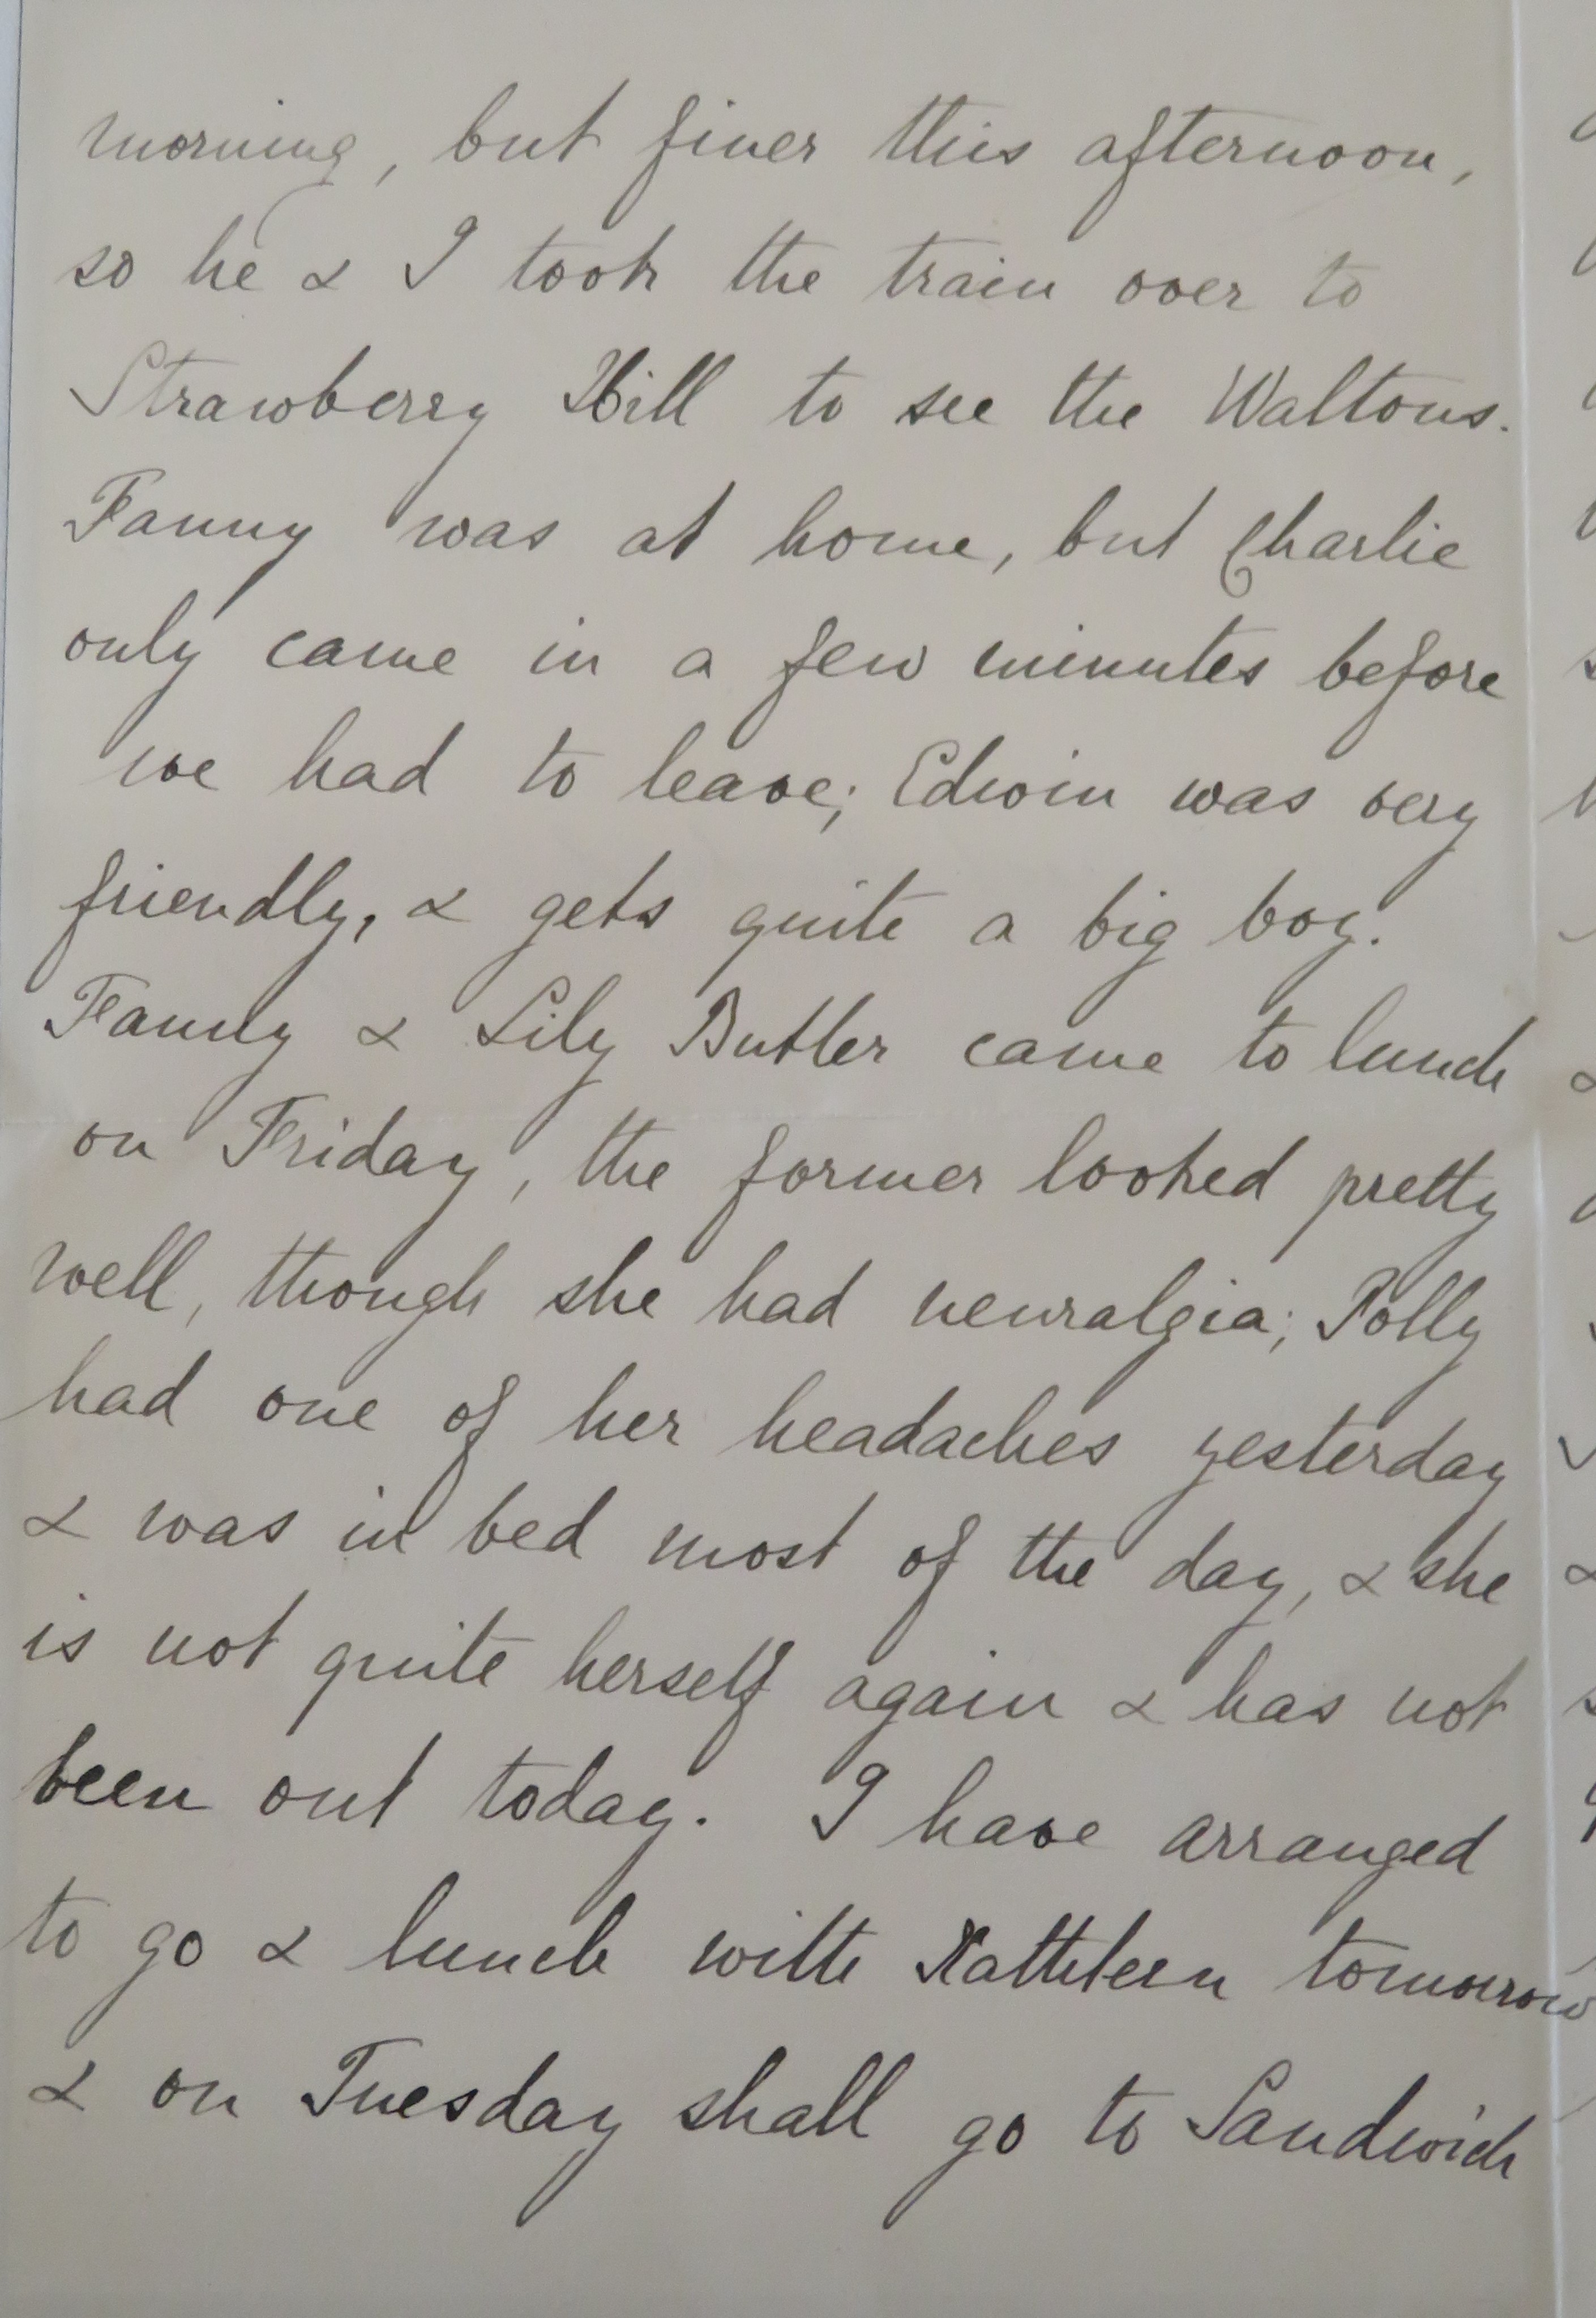 morning, but finer this afternoon,
so he & I took the train over to
Strawberry Hill to see the Waltons.
Fanny was at home, but Charlie
only came in a few minutes before
we had to leave; Edwin was very
friendly, & gets quite a big boy.
Fanny & Lily Butler came to lunch
on Friday, the former looked pretty
well, though she had neuralgia; Polly
had one of her headaches yesterday
& was in bed most of the day, & she
is not quite herself again & has not
been out today. I have arranged
to go & lunch with Kathleen tomorrow
& on Tuesday shall go to Sandwich